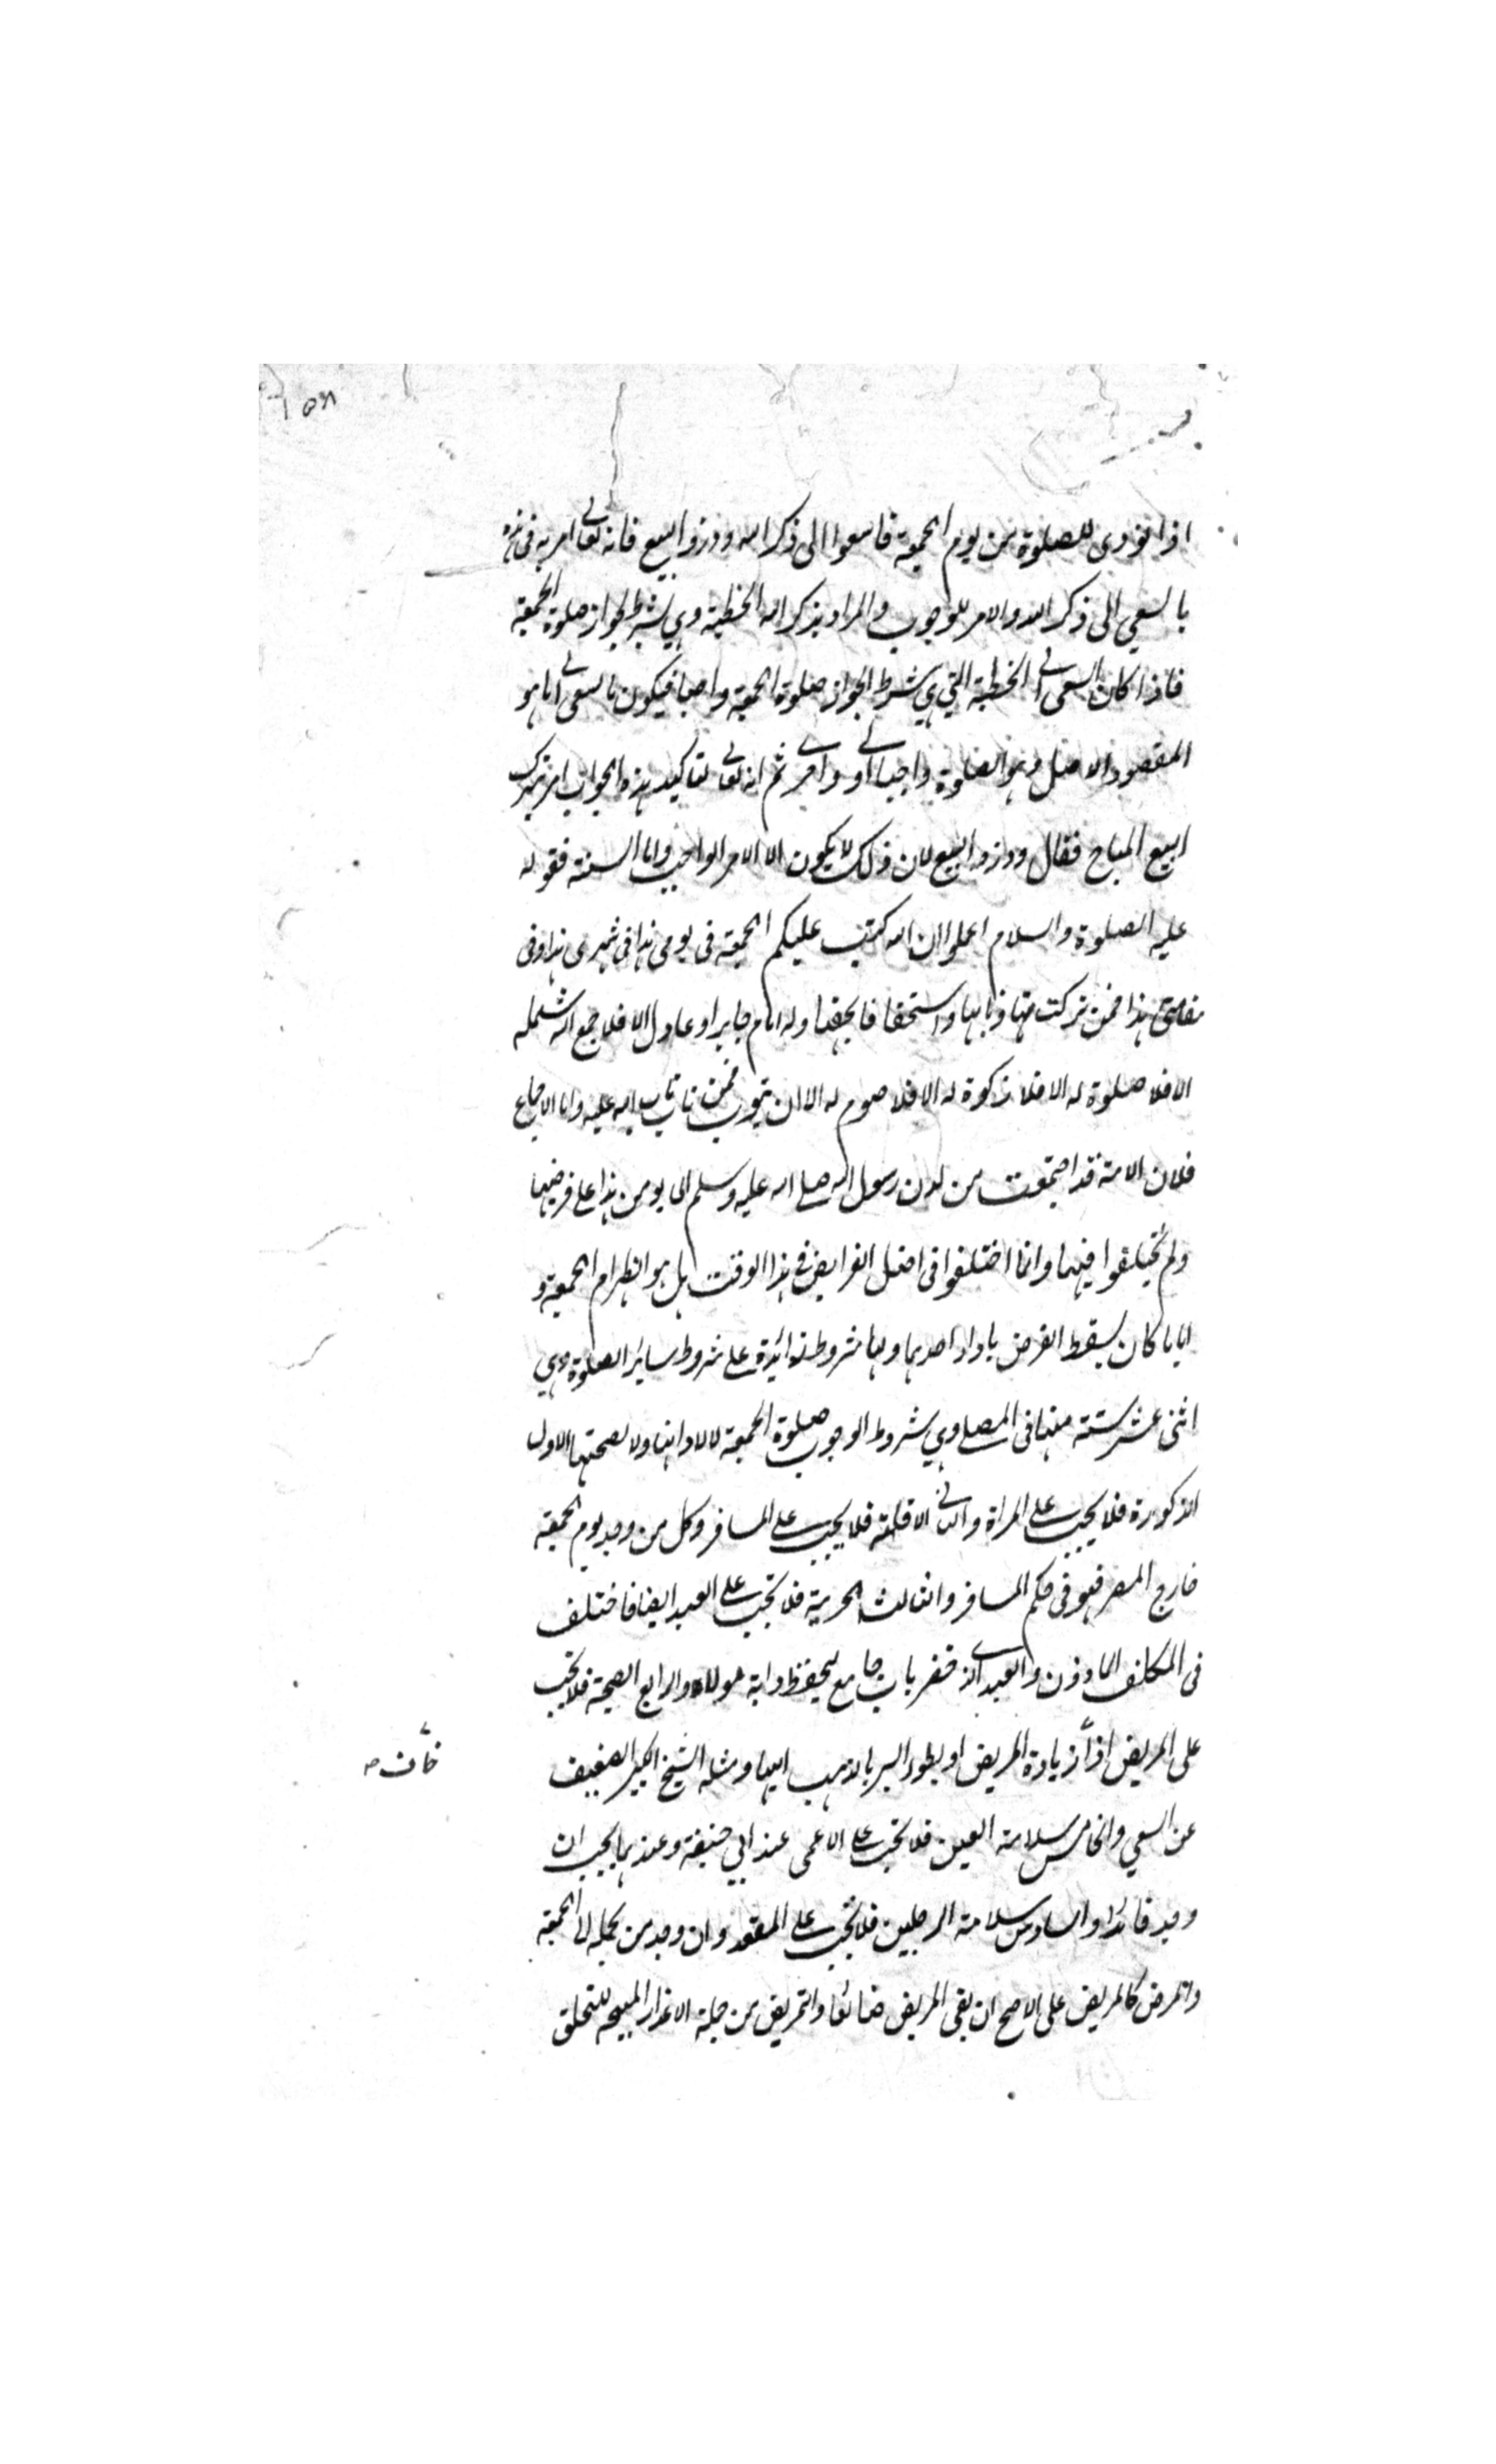 ١٥٨
اذا نودى للصلوة من يوم الجمعة فاسعوا الى ذكر الله وذروا البيع فانه تعالى امر به فى
بالسعي الى ذكر الله والامر للوجوب والمراد بذكر الله الخطبة وهي شرط لجواز صلوة الجمعة
فاذا كان السعى الى الخطبة التي هي شرط الجواز صلوة الجمعة واجبا فيكون بالسعى الى ما هو
المقصود الاصل وهو الصلوة واجبا اولى واحرى ثم انه تعالى لتاكيد هذه الجواب امر بترك
البيع المباح فقال وذروا البيع لان ذلك لا يكون الا الامر الواجب واما السنة فقوله
عليه الصلوة والسلام اعلموا ان الله كتب عليكم الجمعة فى يومى هذا فى شهرى هذا وفى
مقامى هذا فمن تركت منها وبها واستخفافا بحقها وله امام جاير او عادل الا فلا جمع الله شمله
الا فلا صلوة له الا فلا زكوة له الا فلا صوم له الا ان يتوب فمن تاب تاب الله عليه واما الاجماع
فلان الامة قد اجتمعت من لدن رسول الله صلى الله عليه وسلم الى يومن هذا على فرضيتها
ولم يختلفوا فيها وانما اختلفوا فى اصل الفرايض فى هذا الوقت هل هو الظهر ام الجمعة و
اياما كان يسقط الفرض باداء احدهما ولها شروط زائدة على شروط سائر الصلوة وهي
اثنى عشر ستة منها فى المصلى وهي شروط الوجوب صلوة الجمعة لا لادائها ولا لصحتها الاول
الذكورة فلا يجب على المراة والثانى الاقامة فلا يجب على المسافر وكل من وجد يوم الجمعة
خارج المصر فهو فى حكم المسافر والثالث الحرية فلا تجب على العبد ايضا فاختلف
فى المكاتف الماذون والعبد الذى حضر باب جامع ليحفظ دابة مولاه والرابع الصحة فلا تجب
على المريض اذا زيادة المريض او بطوء البرء بالذهب اليها ومثله الشيخ الكبير الضعيف
خاف صح
عن السعي والخامس سلامة العين فلا تجب على الاعمى عند ابي حنيفة وعندهما يجب ان
وجد قائدا والسادس سلامة الرجلين فلا تجب على المقعد وان وجد من يحمله الى الجمعة
والمرض كالمريض على الاصح ان بقى المريض ضائعا والتمريض من جملة الاعذار المبيحة للتخلف